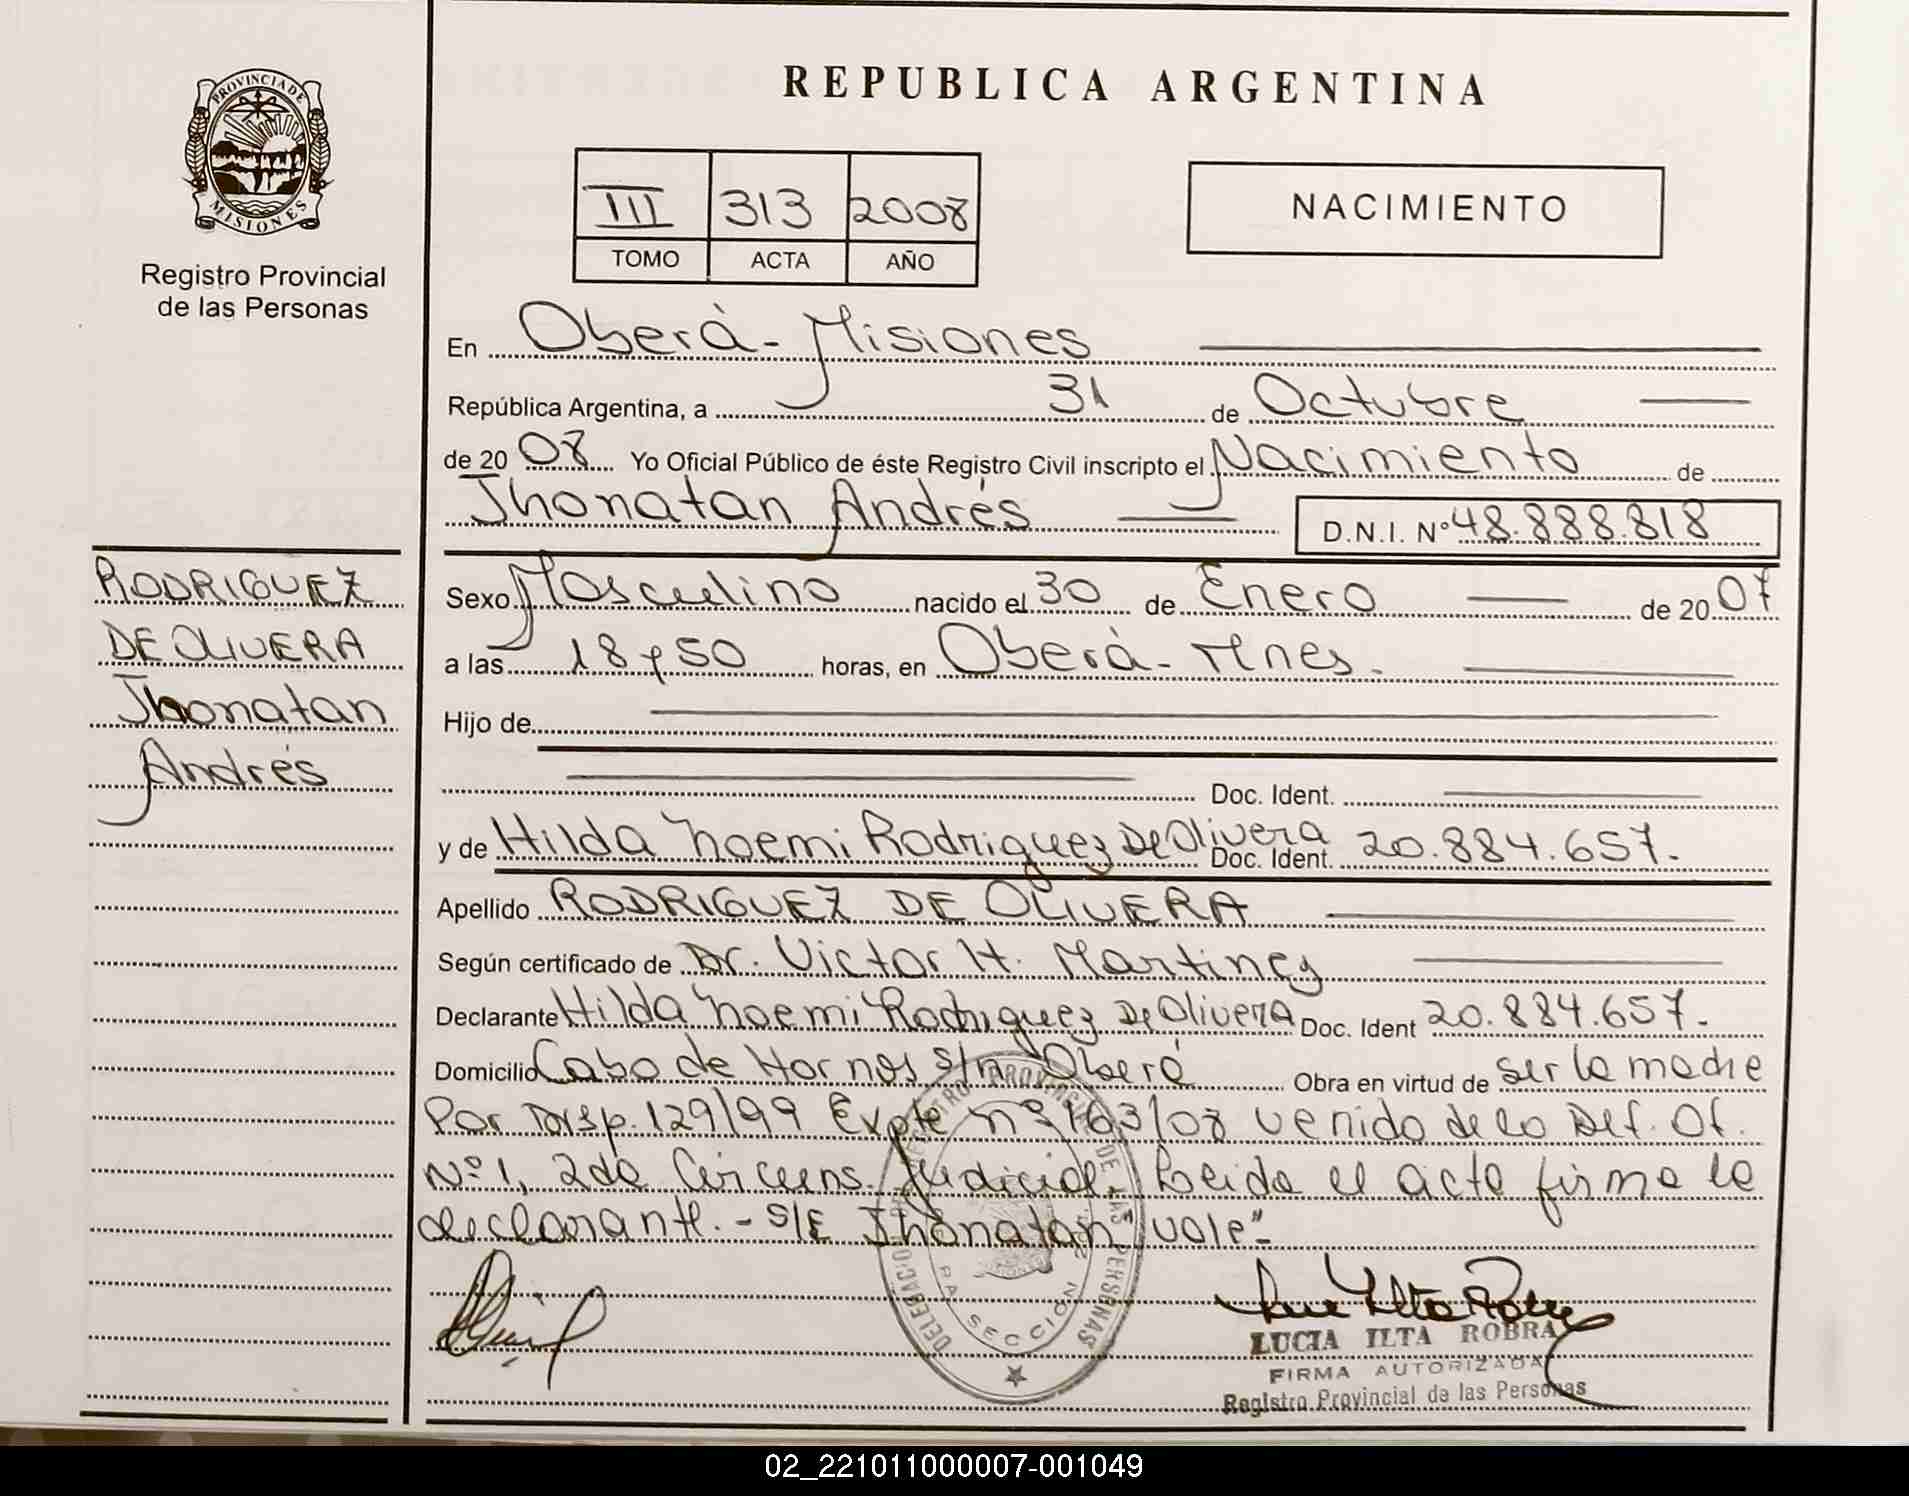 PROVINCIA DE
MISIONES
Registro Provincial
de las Personas
REPUBLICA ARGENTINA
III 313 2008
TOMO ACTA AÑO
NACIMIENTO
En Oberá - Misiones
República Argentina, a 31 de Octubre
de 20 08 Yo Oficial Público de éste Registro Civil inscripto el Nacimiento de
Jhonatan Andrés D.N.I. Nº 48.888.818
RODRIGUEZ
DE OLIVERA
Jhonatan
Andrés
Sexo Masculino nacido el 30 de Enero de 20 07
a las 18 y 50 horas, en Oberá - Mnes.
Hijo de
Doc. Ident.
y de Hilda Noemi Rodriguez De Olivera Doc. Ident. 20.884.657.
Apellido RODRIGUEZ DE OLIVERA
Según certificado de Dr. Victor H. Martinez
Declarante Hilda Noemi Rodriguez De Olivera Doc. Ident 20.884.657.
Domicilio Cabo de Hornos s/n Oberá Obra en virtud de ser la madre
Por Disp. 129/99 Expte nº 163/08 venido de la Def. Of.
Nº 1, 2da Circuns. Judicial. Leida el acta firma la
declarante. - S/E Jhonatan "vale" -
DELEGACION REGISTRO PROVINCIAL DE LAS PERSONAS
SECCION
LUCIA ILTA ROBRA
FIRMA AUTORIZADA
Registro Provincial de las Personas
02_221011000007-001049